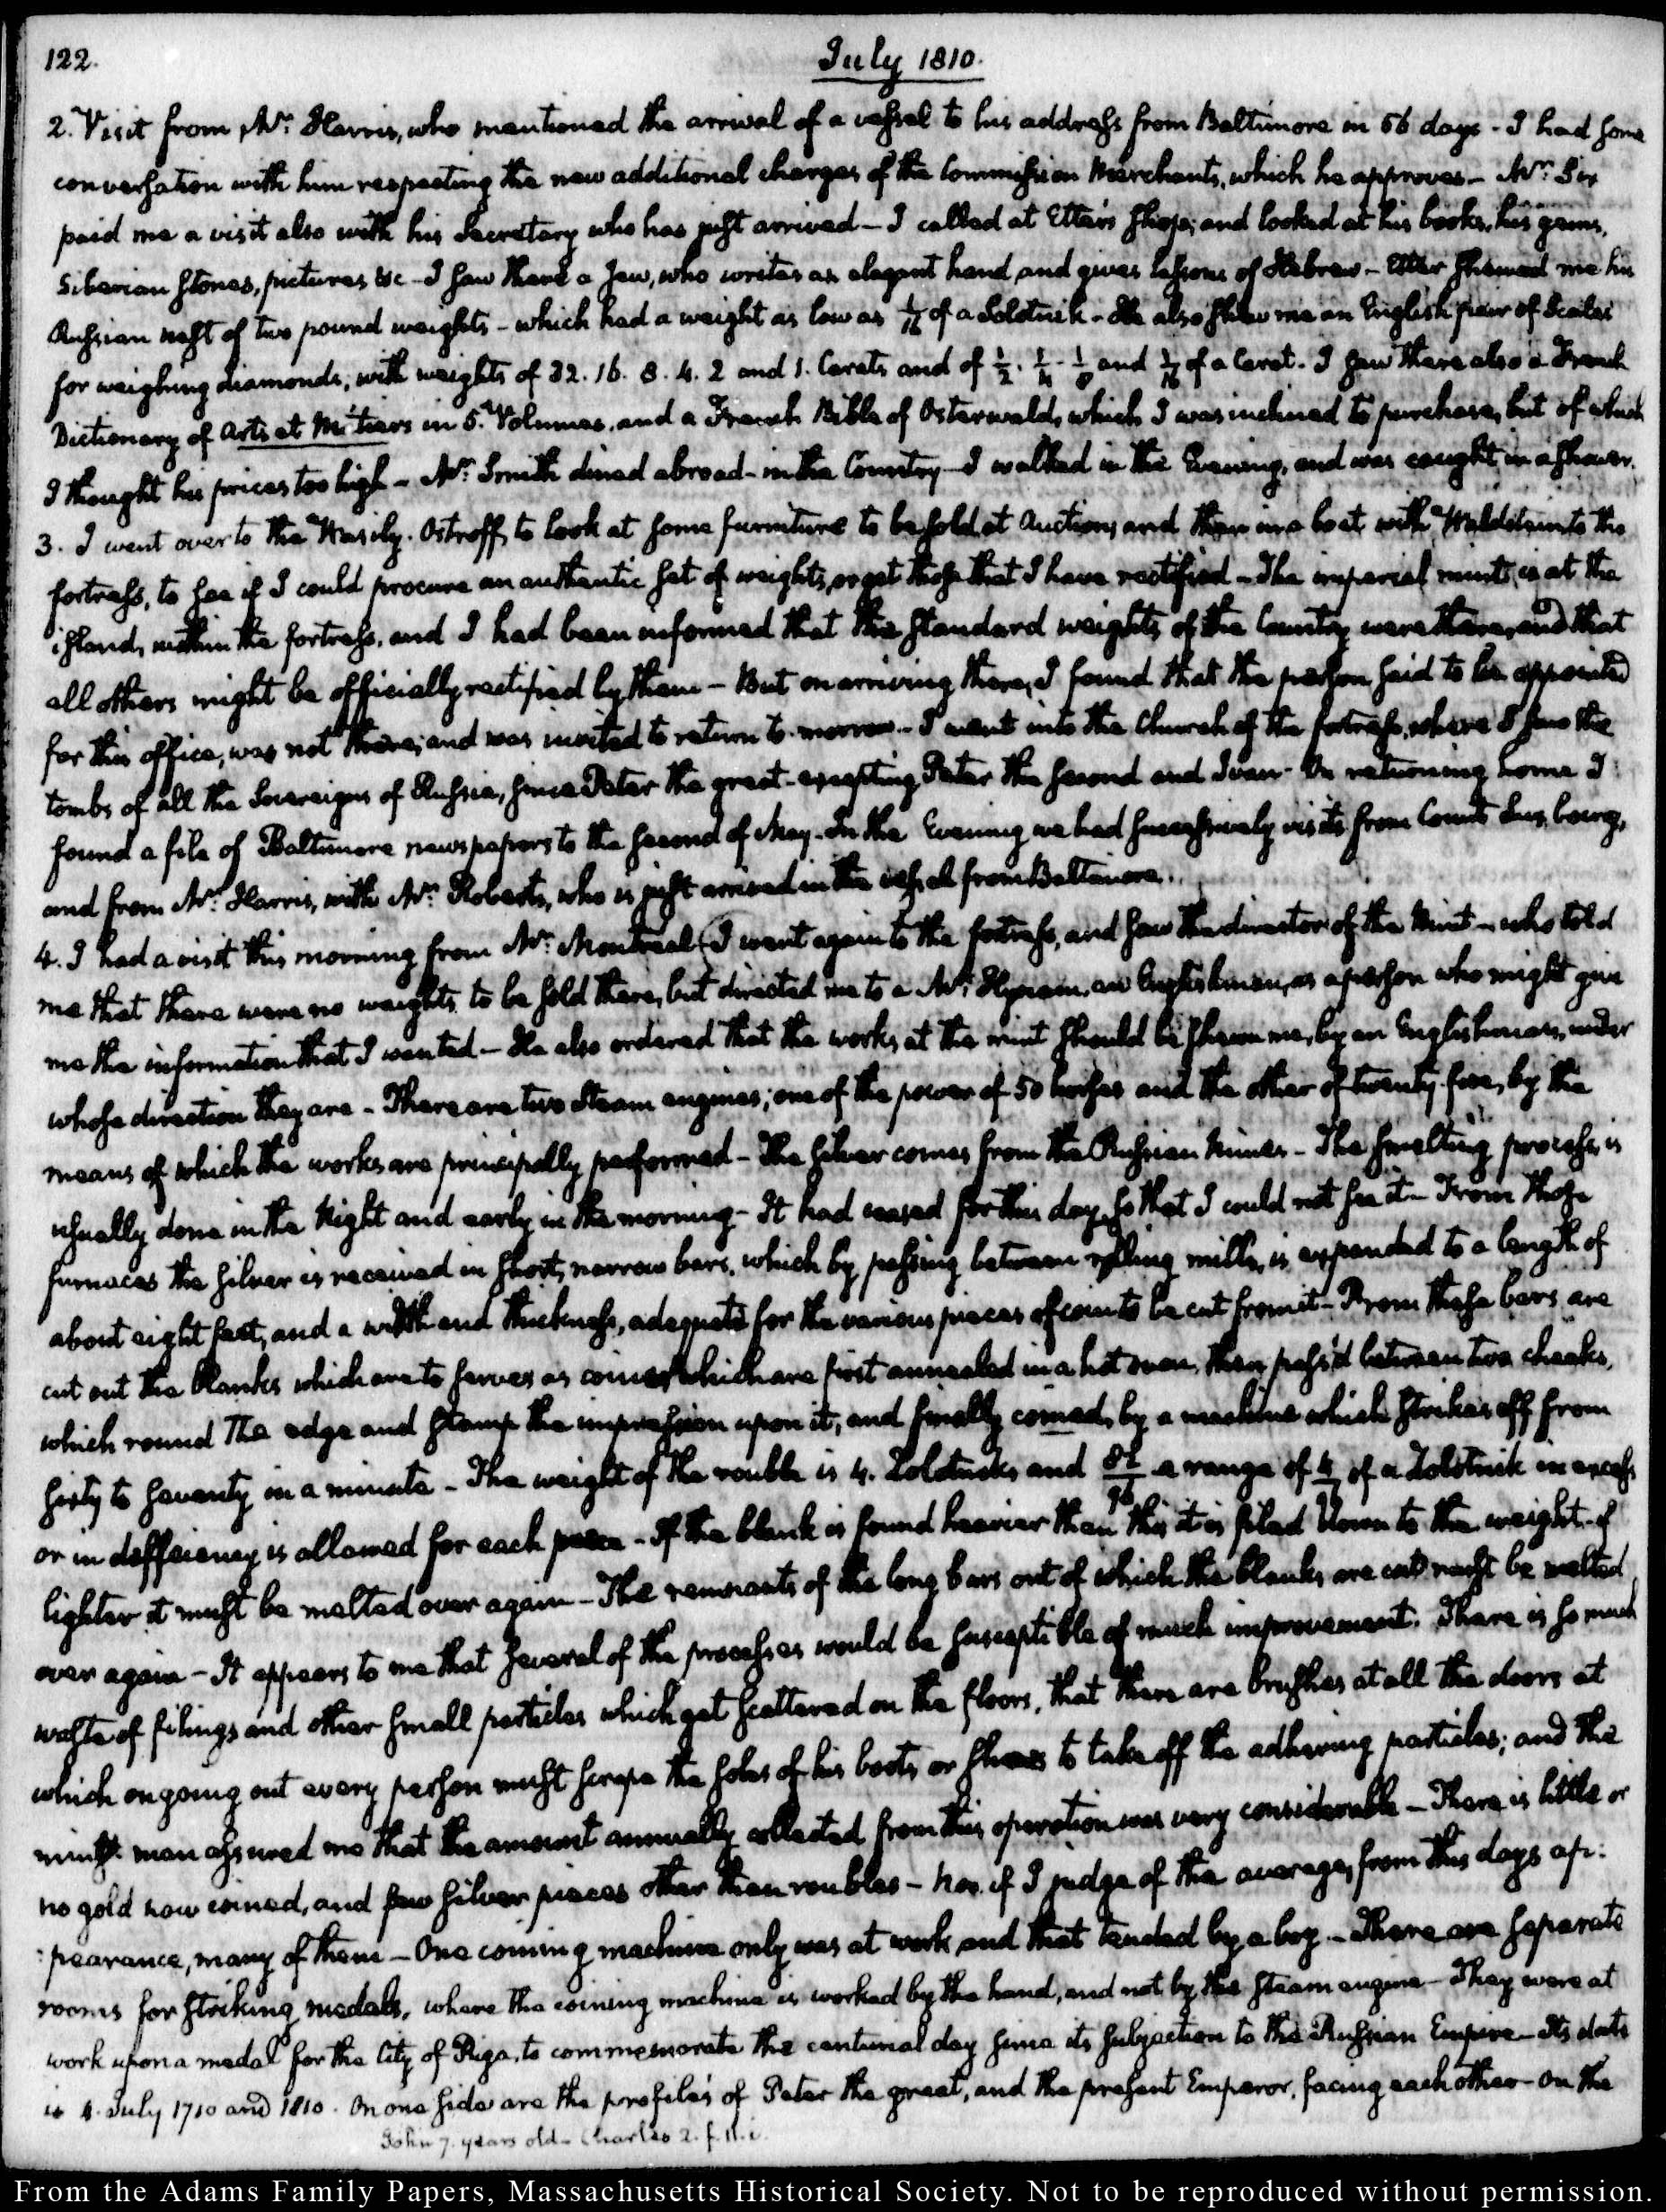 122.
July 1810.
2. Visit from Mr. Harris, who mentioned the arrival of a vessel to his address from Baltimore in 56 days - I had some
conversation with him respecting the new additional charges of the Commission Merchants, which he approves - Mr. Six
paid me a visit also with his Secretary who has just arrived - I called at Etter's shop, and looked at his books, his gems,
Siberian stones, pictures &c - I saw there a Jew, who writes an elegant hand, and gives lessons of Hebrew - Etter shewed me his
Russian nest of two pound weights - which had a weight as low as 1/16 of a Solotnik - He also shew me an English pair of Scales
for weighing diamonds, with weights of 32. 16. 8. 4. 2 and 1. Carats and of 1/2. 1/4. 1/8 and 1/16 of a Carat. I saw there also a French
Dictionary of Arts et Métiers in 5. Volumes, and a French Bible of Osterwald, which I was inclined to purchase, but of which
I thought his prices too high - Mr. Smith dined abroad - in the Country - I walked in the Evening, and was caught in a shower.
3. I went over to the Wasily-Ostroff, to look at some furniture to be sold at Auction, and then in a boat with Waldstein to the
fortress, to see if I could procure an authentic set of weights, or get those that I have rectified - The imperial mint, is at the
island, within the fortress, and I had been informed that the standard weights of the Country were there, and that
all others might be officially rectified by them - But on arriving there, I found that the person said to be appointed
for this office, was not there; and was invited to return to-morrow - I went into the Church of the fortress, where I saw the
tombs of all the Sovereigns of Russia, since Peter the great - excepting Peter the second and Ivan - On returning home I
found a file of Baltimore newspapers to the second of May - In the Evening we had successively visits from Count
and from Mr. Harris, with Mr. Roberts, who is just arrived in the vessel from Baltimore.
4. I had a visit this morning from Mr. Montreal (I went again to the fortress, and saw the director of the Mint - who told
me that there were no weights to be sold there, but directed me to a Mr. an Englishman, as a person who might give
me the information that I wanted - He also ordered that the works at the mint should be shewn me, by an Englishman, under
whose direction they are - There are two Steam engines; one of the power of 50 horses and the other of twenty-five, by the
means of which the works are principally performed - The Silver comes from the Russian Mines - The smelting process, is
usually done in the Night and early in the morning - It had ceased for this day, so that I could not see it - From those
furnaces the Silver is received in short, narrow bars, which by passing between rolling mills, is expanded to a length of
about eight feet, and a width and thickness, adequate for the various pieces of coin to be cut from it - From these bars are
cut out the blanks which are to serve as coins, which are first annealed in a hot oven, then pass'd between two cheeks,
which round the edge and stamp the impression upon it, and finally coined, by a machine which strikes off from
sixty to seventy in a minute - The weight of the rouble is 4. Zolotnicks and 82/96 a range of of a Zolotnik in excess
or in defficiency is allowed for each piece - If the blank is found heavier than this it is filed down to the weight - if
lighter it must be melted over again - The remnants of the long bars out of which the blanks are cut must be melted
over again - It appears to me that several of the processes would be susceptible of much improvement. There is so much
waste of filings and other small particles which get scattered on the floors, that there are brushes at all the doors at
which on going out every person must scrape the soles of his boots or shoes to take off the adhering particles; and the
mint man assured me that the amount annually collected from this operation was very considerable - There is little or
no gold now coined, and few silver pieces other than roubles - nor if I judge of the average, from this days ap:
:pearance, many of them - One coining machine only was at work, and that tended by a boy - There are separate
rooms for striking medals, where the coining machine is worked by the hand, and not by the steam engine - They were at
work upon a medal for the City of Riga, to commemorate the centurial day since its subjection to the Russian Empire - Its date
is 4. July 1710 and 1810. On one side are the profiles of Peter the great, and the present Emperor, facing each other - on the
John 7. years old - Charles 2.
From the Adams Family Papers, Massachusetts Historical Society. Not to be reproduced without permission.